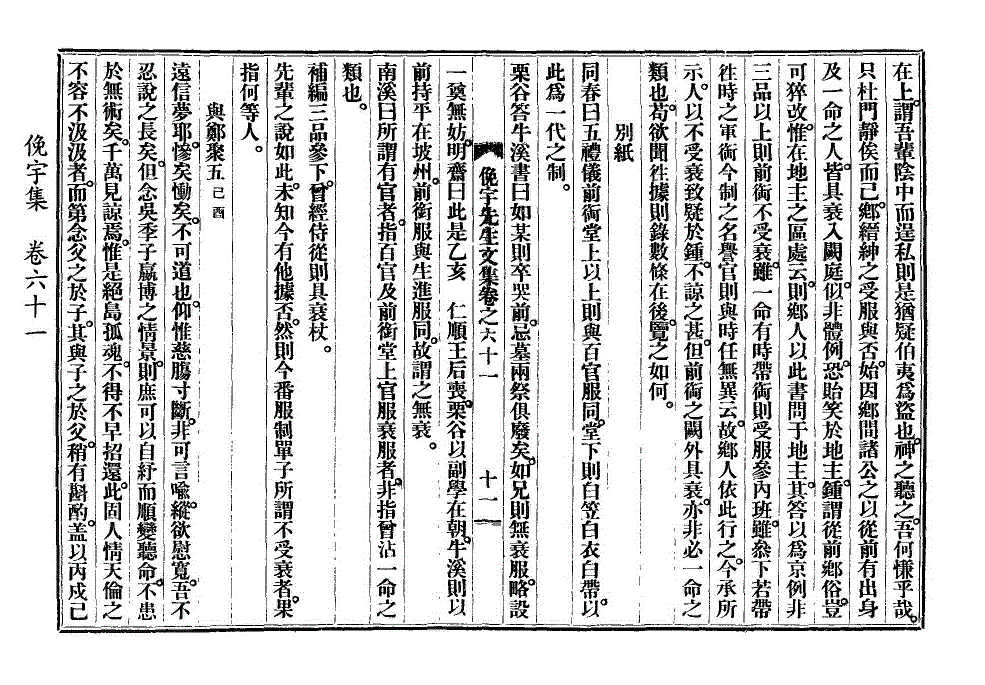 在上。謂吾輩陰中而逞私則是猶疑伯夷爲盜也。神之聽之。吾何慊乎哉。
只杜門靜俟而已。鄕縉神之受服與否。始因鄕間諸公之以從前有出身
及一命之人。皆具衰入闕庭。似非體例。恐貽笑於地主。鍾謂從前鄕俗。豈
可猝改。惟在地主之區處云。則鄕人以此書問于地主。其答以爲京例非
三品以上則前銜不受衰。雖一命有時帶銜則受服參內班。雖叅下若帶
徃時之軍銜今制之名譽官則與時任無異云。故鄕人依此行之。今承所
示。人以不受衰致疑於鍾。不諒之甚。但前銜之闕外具衰。亦非必一命之
類也。苟欲聞徃據則錄數條在後。覽之如何。
別紙
同春曰五禮儀前銜堂上以上則與百官服同。堂下則白笠白衣白帶。以
此爲一代之制。
栗谷答牛溪書曰如某則卒哭前。忌墓兩祭俱廢矣。如兄則無衰服。略設
俛宇先生文集卷之六十一 十一
一奠無妨。明齋曰此是乙亥 仁順王后喪。栗谷以副學在朝。牛溪則以
前持平在坡州。前銜服與生進服同。故謂之無衰。
南溪曰所謂有官者。指百官及前銜堂上官服衰服者。非指曾沾一命之
類也。
補編三品參下。曾經侍從則具衰杖。
先輩之說如此。未知今有他據否。然則今番服制單子所謂不受衰者。果
指何等人。
與鄭聚五 己酉
遠信夢耶。慘矣慟矣。不可道也。仰惟慈膓寸斷。非可言喩。縱欲慰寬。吾不
忍說之長矣。但念吳季子嬴博之情景。則庶可以自紓而順變聽命。不患
於無術矣。千萬見諒焉。惟是絶島孤魂。不得不早招還。此固人情天倫之
不容不汲汲者。而第念父之於子。其與子之於父。稍有斟酌。盖以丙戌己
俛宇集 卷六十一